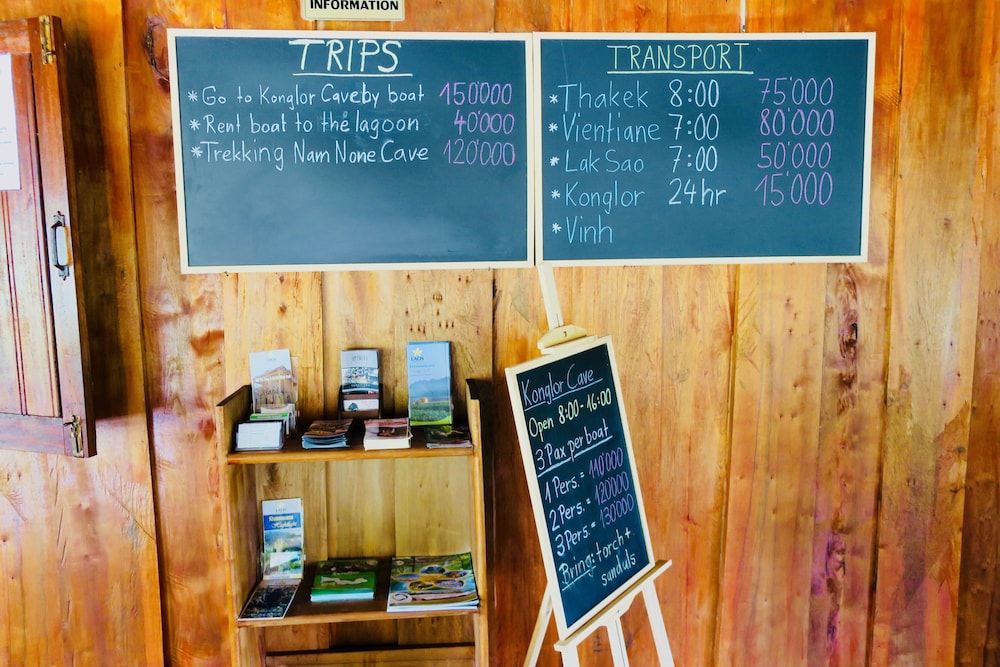 INFORMATION
TRIPS
* Go to Konglor Cave by boat 150'000
* Rent boat to the lagoon 40'000
* Trekking Nam None Cave 120'000
TRANSPORT
* Thakek 8:00 75'000
* Vientiane 7:00 80'000
* Lak Sao 7:00 50'000
* Konglor 24hr 15'000
* Vinh
Konglor Cave
Open 8:00-16:00
3 Pax per boat
1 Pers. = 110'000
2 Pers. = 120'000
3 Pers. = 130'000
Bring: torch +
sandals
LAOS